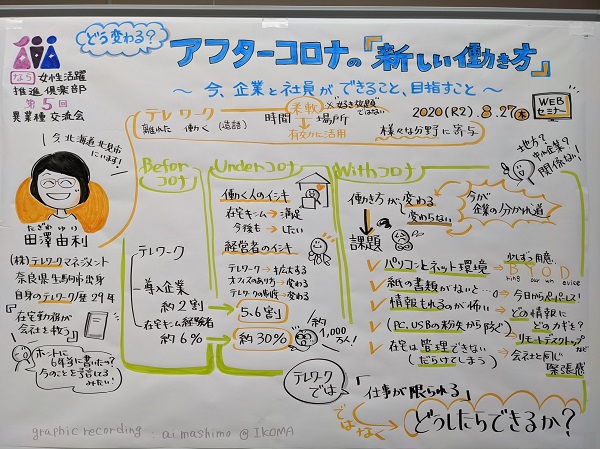 どう変わる？
アフターコロナの『新しい働き方』
～今、企業と社員が、できること、目指すこと～
なら女性活躍
推進倶楽部
第5回
異業種交流会
2020(R2).8.27(木)
WEB
セミナー
テレワーク
離れた 働く(造語)
柔軟
※好き放題
ではない
時間 場所
有効に活用
様々な分野に寄与
今、北海道北見市
にいます！
たざわ ゆり
田澤由利
(株)テレワークマネジメント
奈良県生駒市出身
自身のテレワーク歴29年
『在宅勤務が
会社を救う』
ホントに
6年半に書いたの？
今のことを言ってる
みたい！
Befor
コロナ
テレワーク
導入企業
約2割
在宅キンム経験者
約6%
Underコロナ
働く人のイシキ
在宅キンム→満足
今後も→したい
経営者のイシキ
テレワーク→拡大する
オフィスのあり方→変わる
テレワークの制度→変わる
5~6割
約30%
約
1,000
万人！
Withコロナ
地方？
中小企業？
関係ない！
働き方が変わる
変わらない
今が
企業の分かれ道
課題
✓パソコンとネット環境→必ずしも用意
BYOD
ring our wn evice
✓紙の書類がないと…→今日からPLPLに！
✓情報もれるのが怖い→どの情報に
どのカギを？
✓(PC,USBの紛失から防ぐ)→リモートデスクトップ
など
✓在宅は管理できない→会社と同じ
(だらけてしまう) 緊張感
テレワーク
では
「仕事が限られる」
ではなく
どうしたらできるか？
graphic recording : ai mashimo @IKOMA